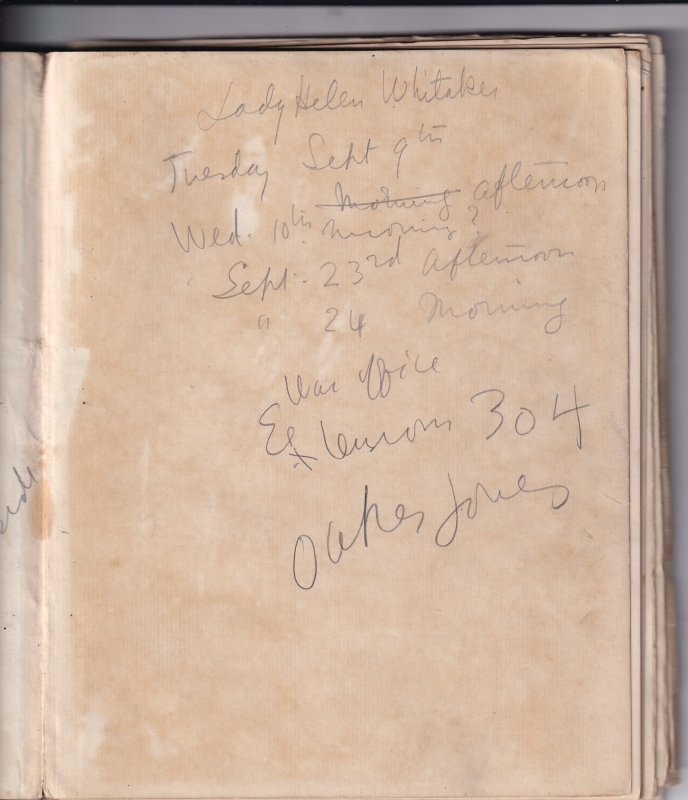 Lady Helen Whitaker
Tuesday Sept 9th
Morning afternoon
Wed. 10th morning?
Sept. 23rd Afternoon
" 24 Morning
War Office
Extension 304
Oakes Jones